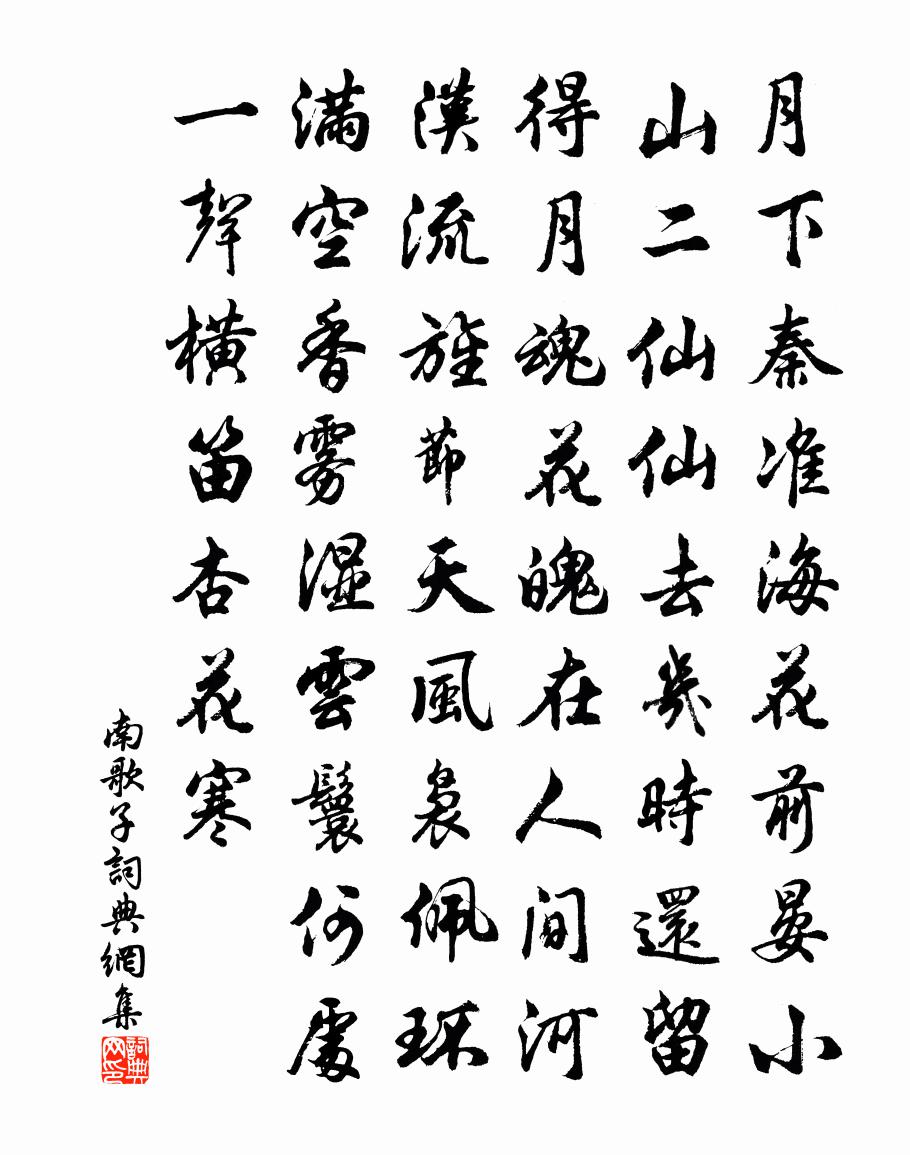 月下秦淮海花前晏小
山二仙仙去幾時還留
得月魂花魄在人間河
漢流旌節天風裊佩环
滿空香雾湿雲鬟何處
一聲橫笛杏花寒
南歌子詞典網集
詞典网印